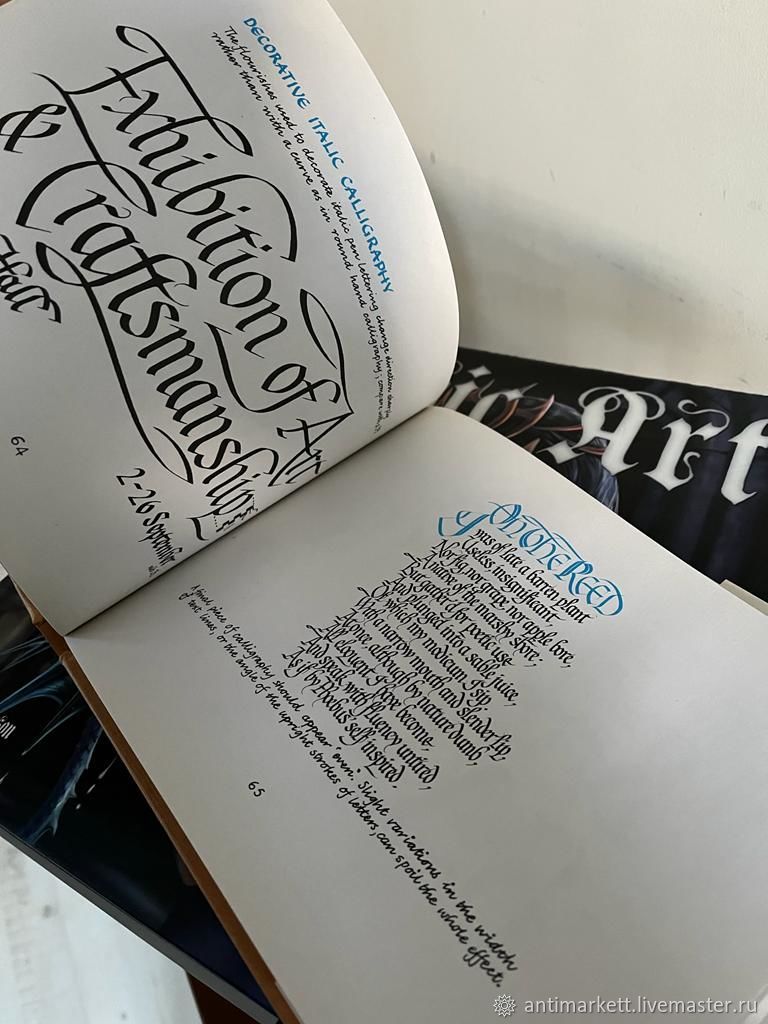 DECORATIVE ITALIC CALLIGRAPHY
The flourishes used to decorate italic pen lettering change direction sharply
rather than with a curve as in round hand calligraphy; compare with
Exhibition of Art
& Craftsmanship
Hall
2-26 September
64
On One Reed
I was of late a barren plant
Useless insignificant,
Nor fig, nor grape, nor apple bore,
A native of the marshy shore;
But gather'd for poetic use
And plunged into a sable juice,
Of which my modicum I sip
With narrow mouth and slender lip,
At once, although by nature dumb,
All eloquent I have become,
And speak with fluency untired,
As if by Phoebus' self inspired.
A final piece of calligraphy should appear 'even'. Slight variations in the width
of text lines, or the angle of the upright strokes of letters, can spoil the whole effect.
65
ic Art
antimarkett.livemaster.ru